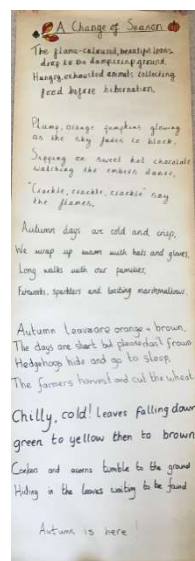 A Change of Season
The flame-coloured, beautiful leaves
drop to the dampening ground.
Hungry, exhausted animals collecting
food before hibernation.
Plump, orange pumpkins glowing
as the sky fades to black.
Sipping on sweet hot chocolate
watching the embers dance.
"Crackle, crackle, crackle" say
the flames.
Autumn days are cold and crisp,
We wrap up warm with hats and gloves,
Long walks with our families,
Fireworks, sparklers and toasting marshmallows.
Autumn leaves are orange + brown,
The days are short but please don't frown
Hedgehogs hide and go to sleep,
The farmers harvest and cut the wheat.
Chilly, cold! leaves falling down
green to yellow then to brown
Conkers and acorns tumble to the ground
Hiding in the leaves waiting to be found
Autumn is here!